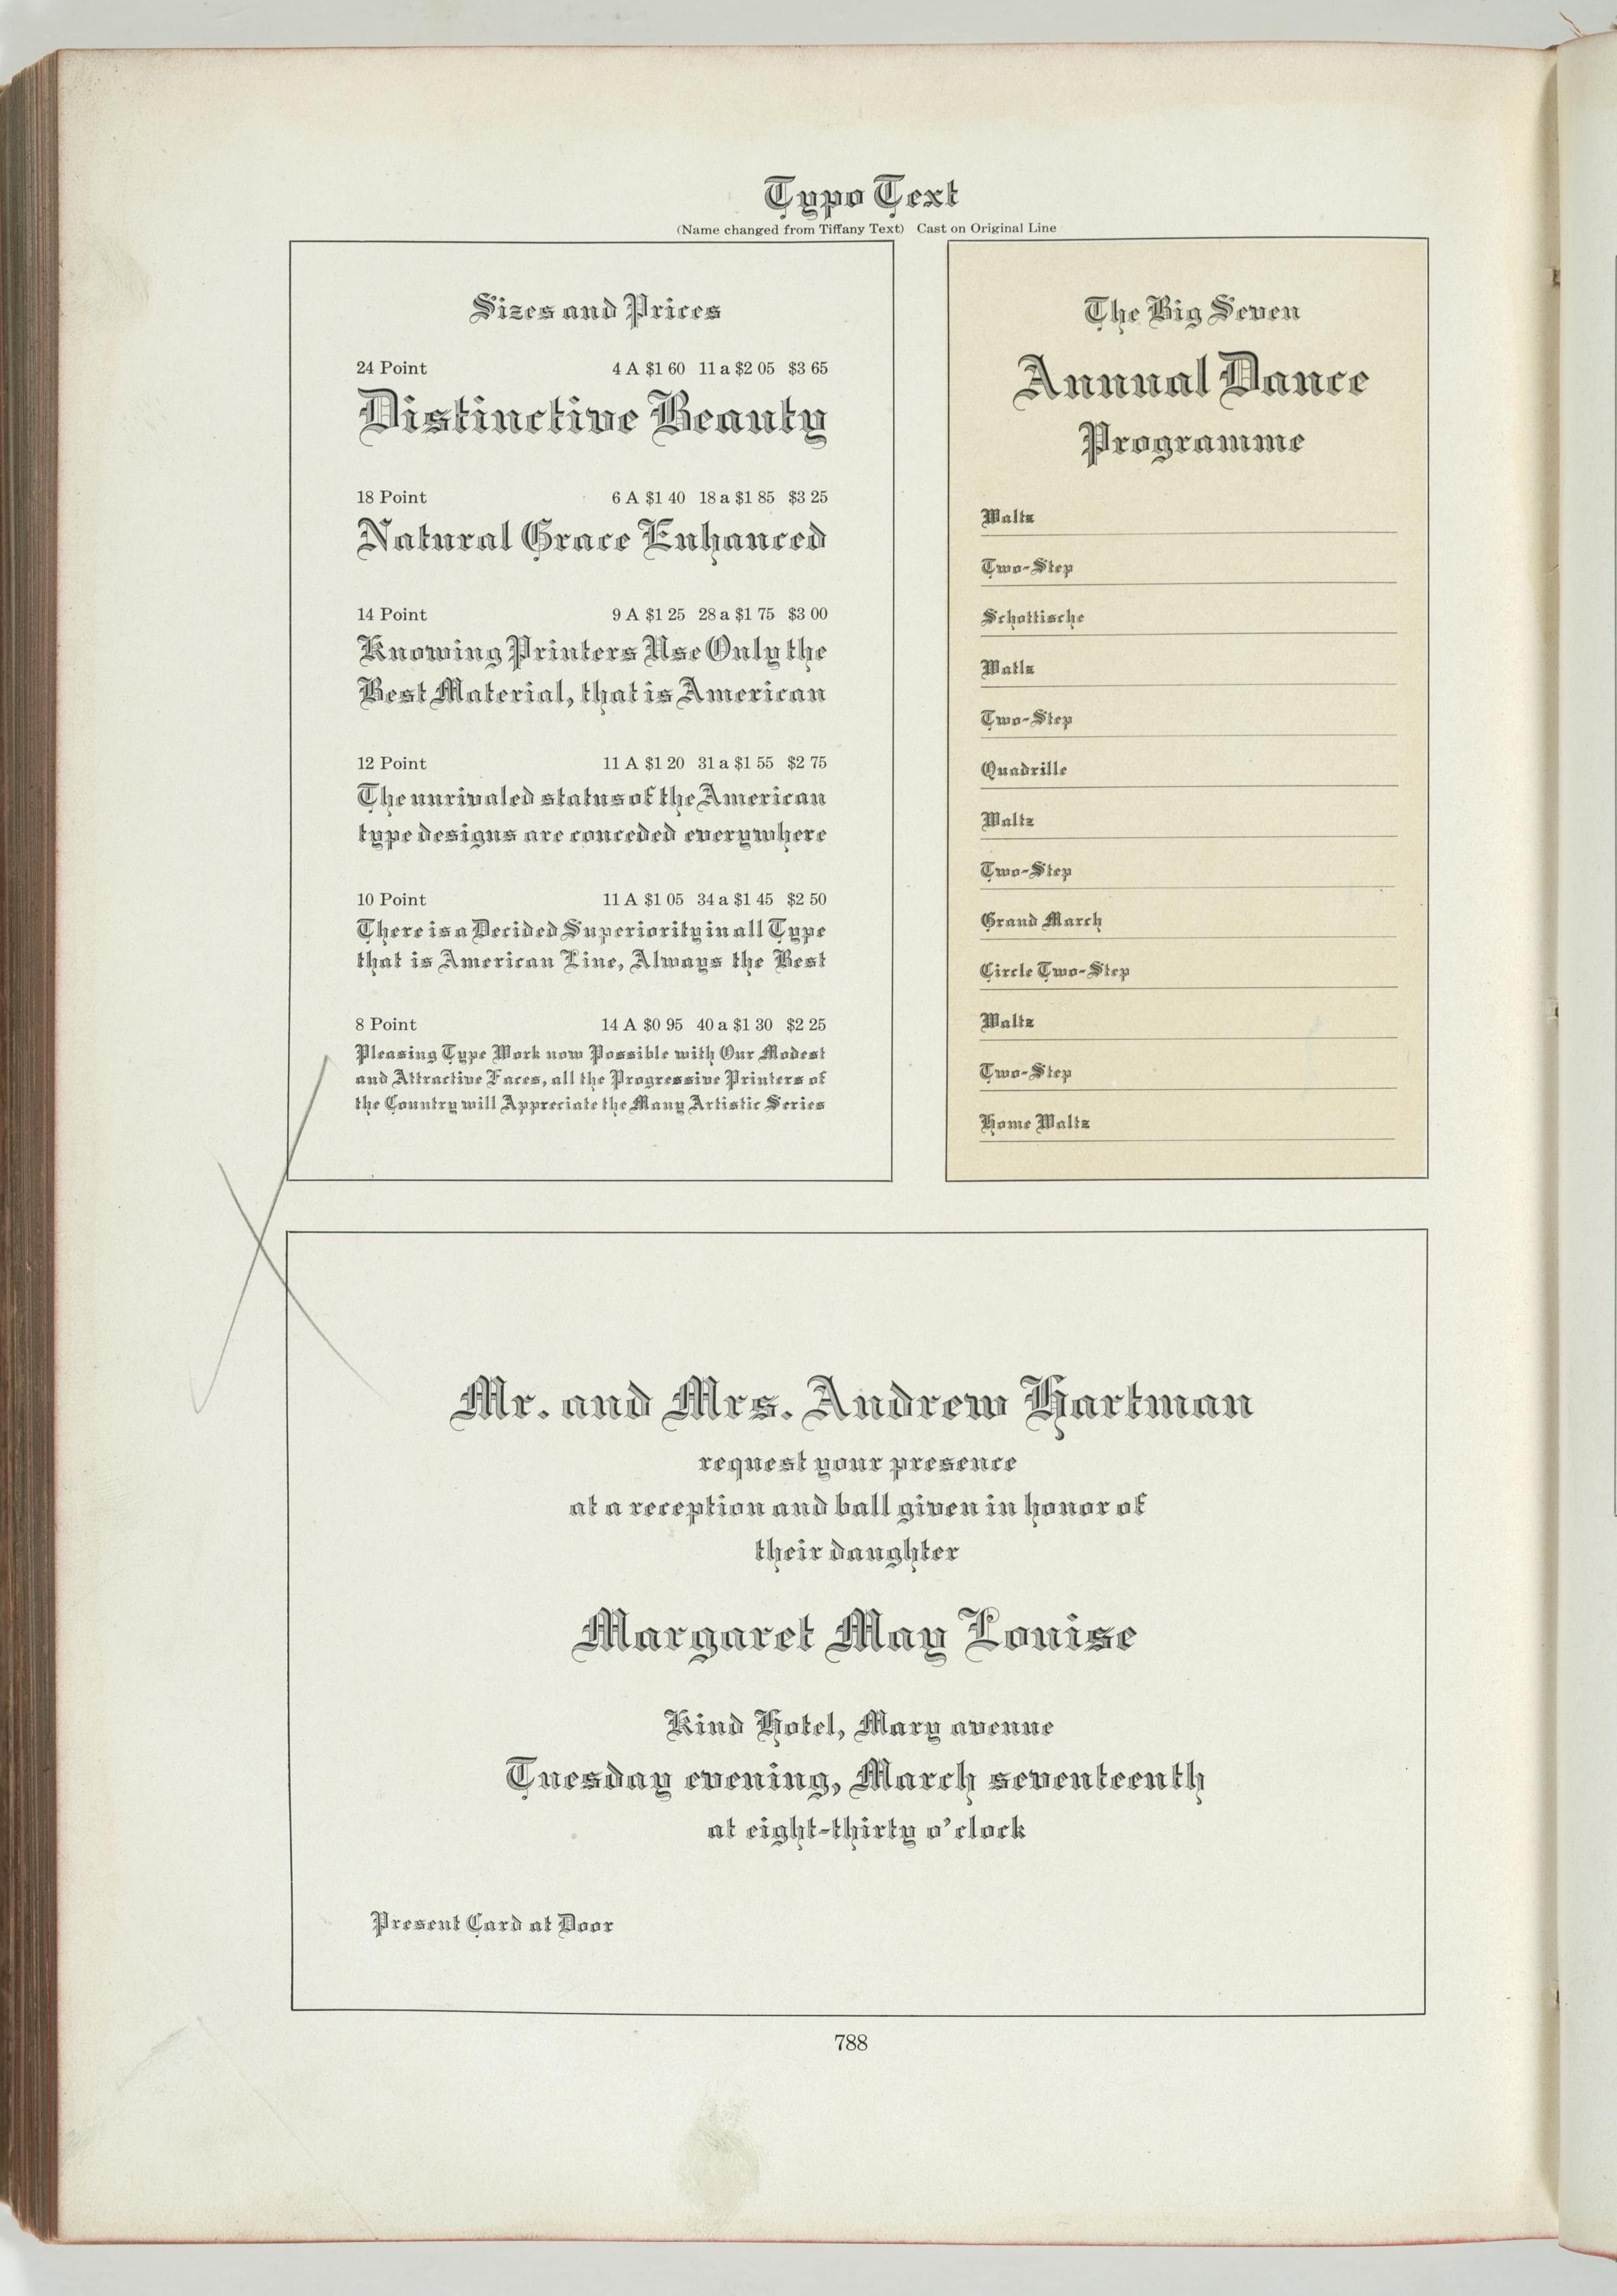 Typo Text
(Name changed from Tiffany Text) Cast on Original Line
Sizes and Prices
24 Point 4 A $1 60 11 a $2 05 $3 65
Distinctive Beauty
18 Point 6 A $1 40 18 a $1 85 $3 25
Natural Grace Enhanced
14 Point 9 A $1 25 28 a $1 75 $3 00
Knowing Printers Use Only the
Best Material, that is American
12 Point 11 A $1 20 31 a $1 55 $2 75
The unrivaled status of the American
type designs are conceded everywhere
10 Point 11 A $1 05 34 a $1 45 $2 50
There is a Decided Superiority in all Type
that is American Line, Always the Best
8 Point 14 A $0 95 40 a $1 30 $2 25
Pleasing Type Work now Possible with Our Modest
and Attractive Faces, all the Progressive Printers of
the Country will Appreciate the Many Artistic Series
The Big Seven
Annual Dance
Programme
Waltz
Two-Step
Schottische
Watlz
Two-Step
Quadrille
Waltz
Two-Step
Grand March
Circle Two-Step
Waltz
Two-Step
Home Waltz
Mr. and Mrs. Andrew Hartman
request your presence
at a reception and ball given in honor of
their daughter
Margaret May Louise
Kind Hotel, Mary avenue
Tuesday evening, March seventeenth
at eight-thirty o'clock
Present Card at Door
788